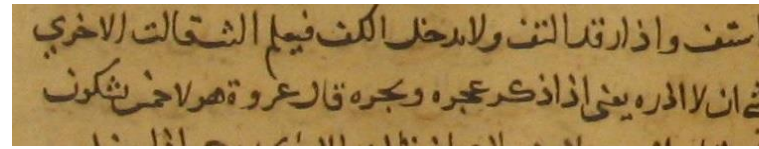 استف واذا رقد التف ولا يدخل الكف فيعلم البث قالت الاخري
ان لا اذره يعني اذا ذكر عجره وبجره قال عروة هولا خمس يشكون